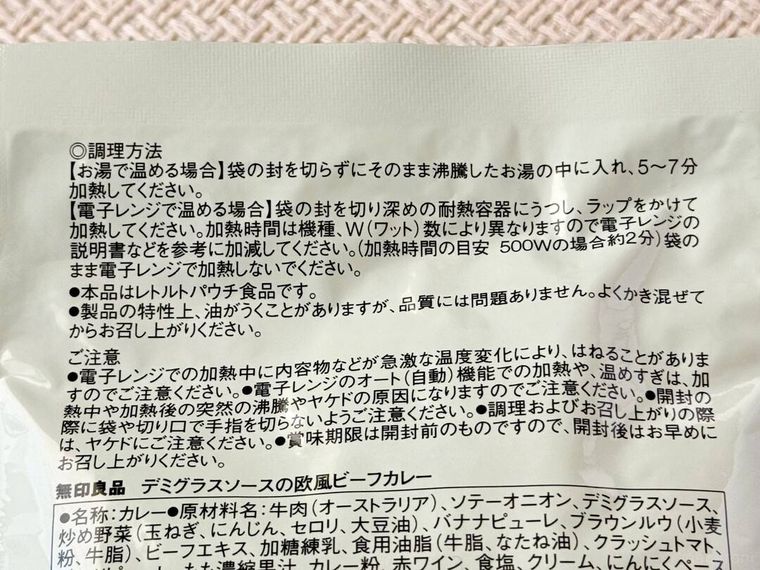 ◎調理方法
【お湯で温める場合】袋の封を切らずにそのまま沸騰したお湯の中に入れ、5〜7分
加熱してください。
【電子レンジで温める場合】袋の封を切り深めの耐熱容器にうつし、ラップをかけて
加熱してください。加熱時間は機種、W(ワット)数により異なりますので電子レンジの
説明書などを参考に加減してください。(加熱時間の目安 500Wの場合約2分)袋の
まま電子レンジで加熱しないでください。
●本品はレトルトパウチ食品です。
●製品の特性上、油がうくことがありますが、品質には問題ありません。よくかき混ぜて
からお召し上がりください。
ご注意
●電子レンジでの加熱中に内容物などが急激な温度変化により、はねることがありま
すのでご注意ください。●電子レンジのオート(自動)機能での加熱や、温めすぎは、加
熱中や加熱後の突然の沸騰やヤケドの原因になりますのでご注意ください。●開封の
際に袋や切り口で手指を切らないようご注意ください。●調理およびお召し上がりの際
は、ヤケドにご注意ください。●賞味期限は開封前のものですので、開封後はお早めに
お召し上がりください。
無印良品 デミグラスソースの欧風ビーフカレー
●名称:カレー●原材料名:牛肉(オーストラリア)、ソテーオニオン、デミグラスソース、
炒め野菜(玉ねぎ、にんじん、セロリ、大豆油)、バナナピューレ、ブラウンルウ(小麦
粉、牛脂)、ビーフエキス、加糖練乳、食用油脂(牛脂、なたね油)、クラッシュトマト、
もも濃縮果汁、カレー粉、赤ワイン、食塩、クリーム、にんにくペース